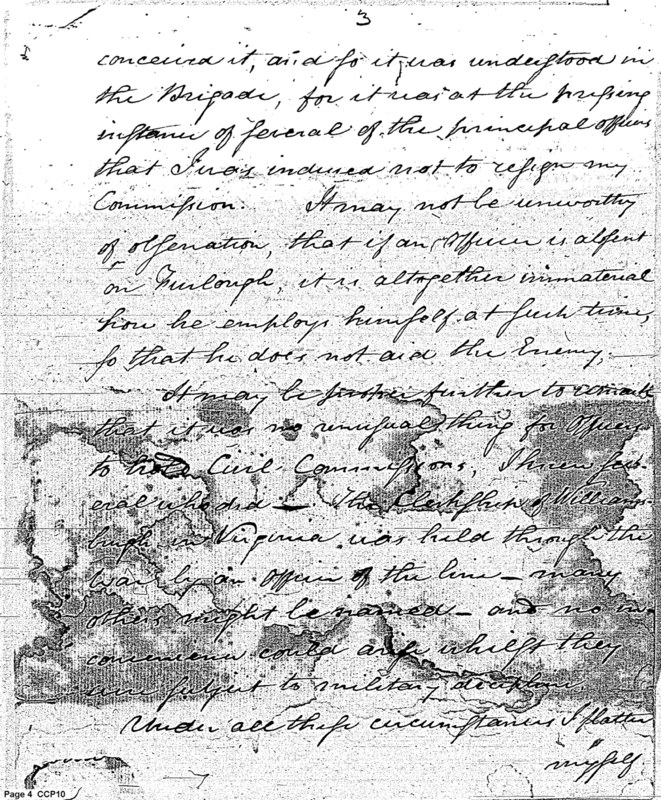 3
conceived it, and so it was understood in
the Brigade, for it was at the pressing
instance of several of the principal officers
that I was induced not to resign my
Commission. It may not be unworthy
of observation, that if an Officer is absent
on Furlough, it is altogether immaterial
how he employs himself at such time,
so that he does not aid the Enemy,
It may be further to remark
that it was no unusual thing for Officers
to hold Civil Commissions, I knew sev-
eral who did — The Clerkship of Williams-
burgh in Virginia was held through the
war by an Officer of the line — many
others might be named — and no in-
convenience could arise whilst they
were subject to military discipline.
Under all these circumstances I flatter
myself
Page 4 CCP10